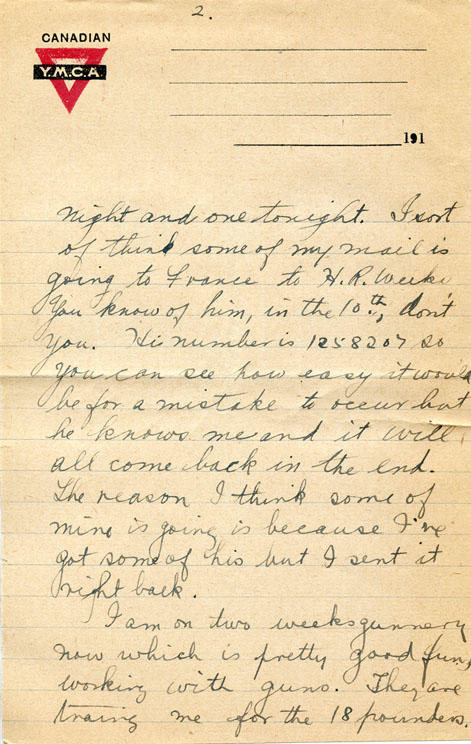 2.
CANADIAN
Y.M.C.A.
191
night and one tonight. I sort
of think some of my mail is
going to France to H.R. Weeks
You know of him, in the 10th, don't
you. His number is 1258207 so
you can see how easy it would
be for a mistake to occur but
he knows me and it will
all come back in the end.
The reason I think some of
mine is going is because I've
got some of his but I sent it
right back.
I am on two weeks gunnery
now which is pretty good fun,
working with guns. They are
traing me for the 18 pounders.